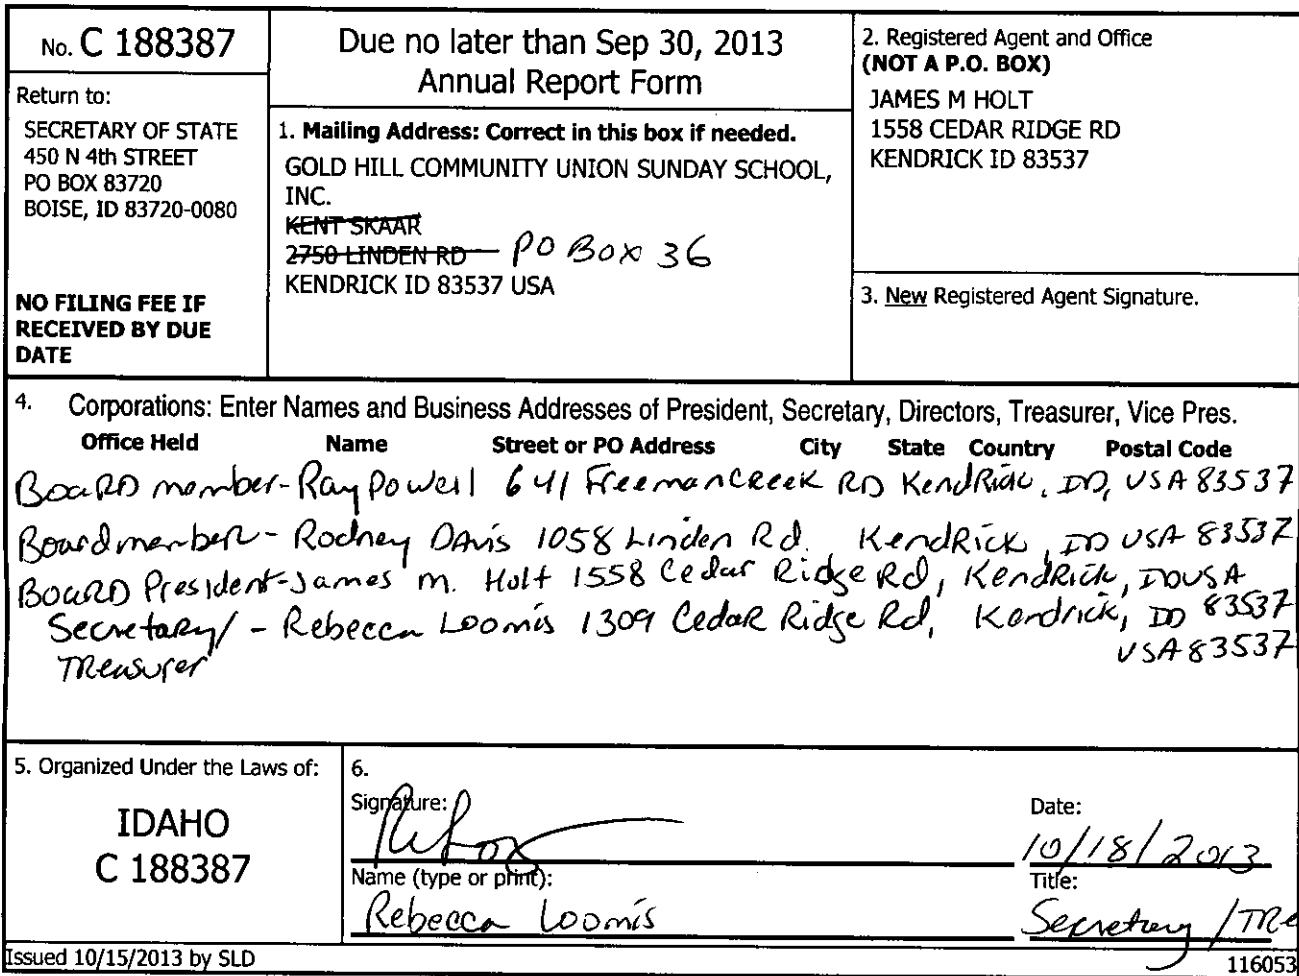 No. C 188387
Return to:
SECRETARY OF STATE
450 N 4th STREET
PO BOX 83720
BOISE, ID 83720-0080
NO FILING FEE IF
RECEIVED BY DUE
DATE
Due no later than Sep 30, 2013
Annual Report Form
1. Mailing Address: Correct in this box if needed.
GOLD HILL COMMUNITY UNION SUNDAY SCHOOL,
INC.
KENT SKAAR
2750 LINDEN RD PO Box 36
KENDRICK ID 83537 USA
2. Registered Agent and Office
(NOT A P.O. BOX)
JAMES M HOLT
1558 CEDAR RIDGE RD
KENDRICK ID 83537
3. New Registered Agent Signature.
4. Corporations: Enter Names and Business Addresses of President, Secretary, Directors, Treasurer, Vice Pres.
Office Held Name Street or PO Address City State Country Postal Code
Board member - Ray Powell 641 Freeman Creek RD Kendrick, ID, USA 83537
Board member - Rodney Davis 1058 Linden Rd. Kendrick, ID USA 83537
Board President - James M. Holt 1558 Cedar Ridge Rd, Kendrick, ID USA
83537
Secretary/ - Rebecca Loomis 1309 Cedar Ridge Rd, Kendrick, ID
Treasurer USA 83537
5. Organized Under the Laws of:
IDAHO
C 188387
6.
Signature:
Date:
10/18/2013
Name (type or print):
Rebecca Loomis
Title:
Secretary /TRe
Issued 10/15/2013 by SLD
116053